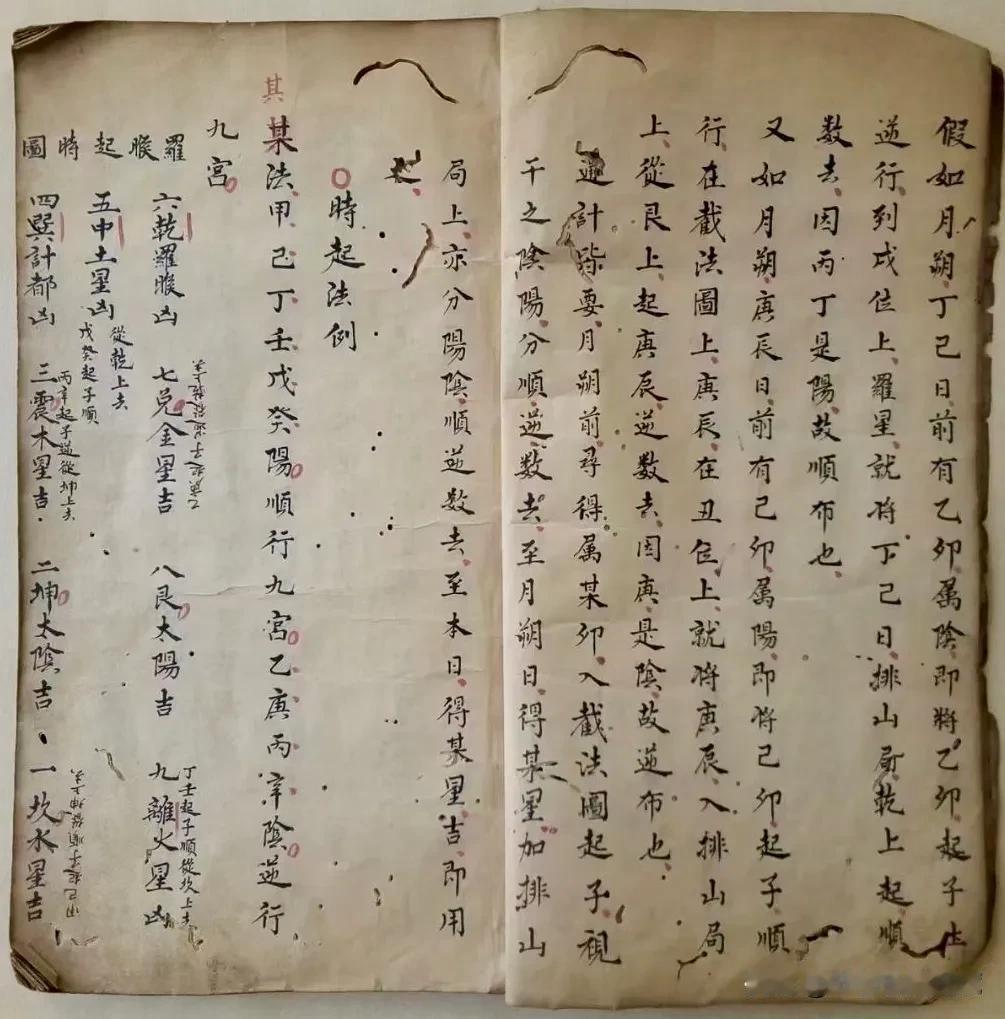 假如月朔丁巳日前有乙卯属陰即將乙卯起子
逆行到戌位上羅星就将丁巳日排山局乾上起順
数去因丙丁是陽故順布也
又如月朔庚辰日前有己卯属陽即将己卯起子順
行在截法圖上庚辰在丑位上就将庚辰入排山局
上從艮上起庚辰逆数去因庚是陰故逆布也
計皆要月朔前尋得属某卯入截法圖起子視
干之陰陽分順逆数去至月朔日得某星加排山
局上亦分陽陰順逆数去至本日得某星吉即用
之
○時起法例
其
某法甲己丁壬戊癸陽順行九宮乙庚丙辛陰逆行
九宮
羅睺起時圖
六乾羅睺凶
七兑金星吉
乙庚起子逆從上去
八艮太陽吉
九離火星凶
丁壬起子順從坎上去
五中土星凶
從乾上去
戊癸起子順
四巽計都凶
三震木星吉
丙辛起子逆從坤上去
二坤太陰吉
一坎水星吉
甲己起子順從坤上去